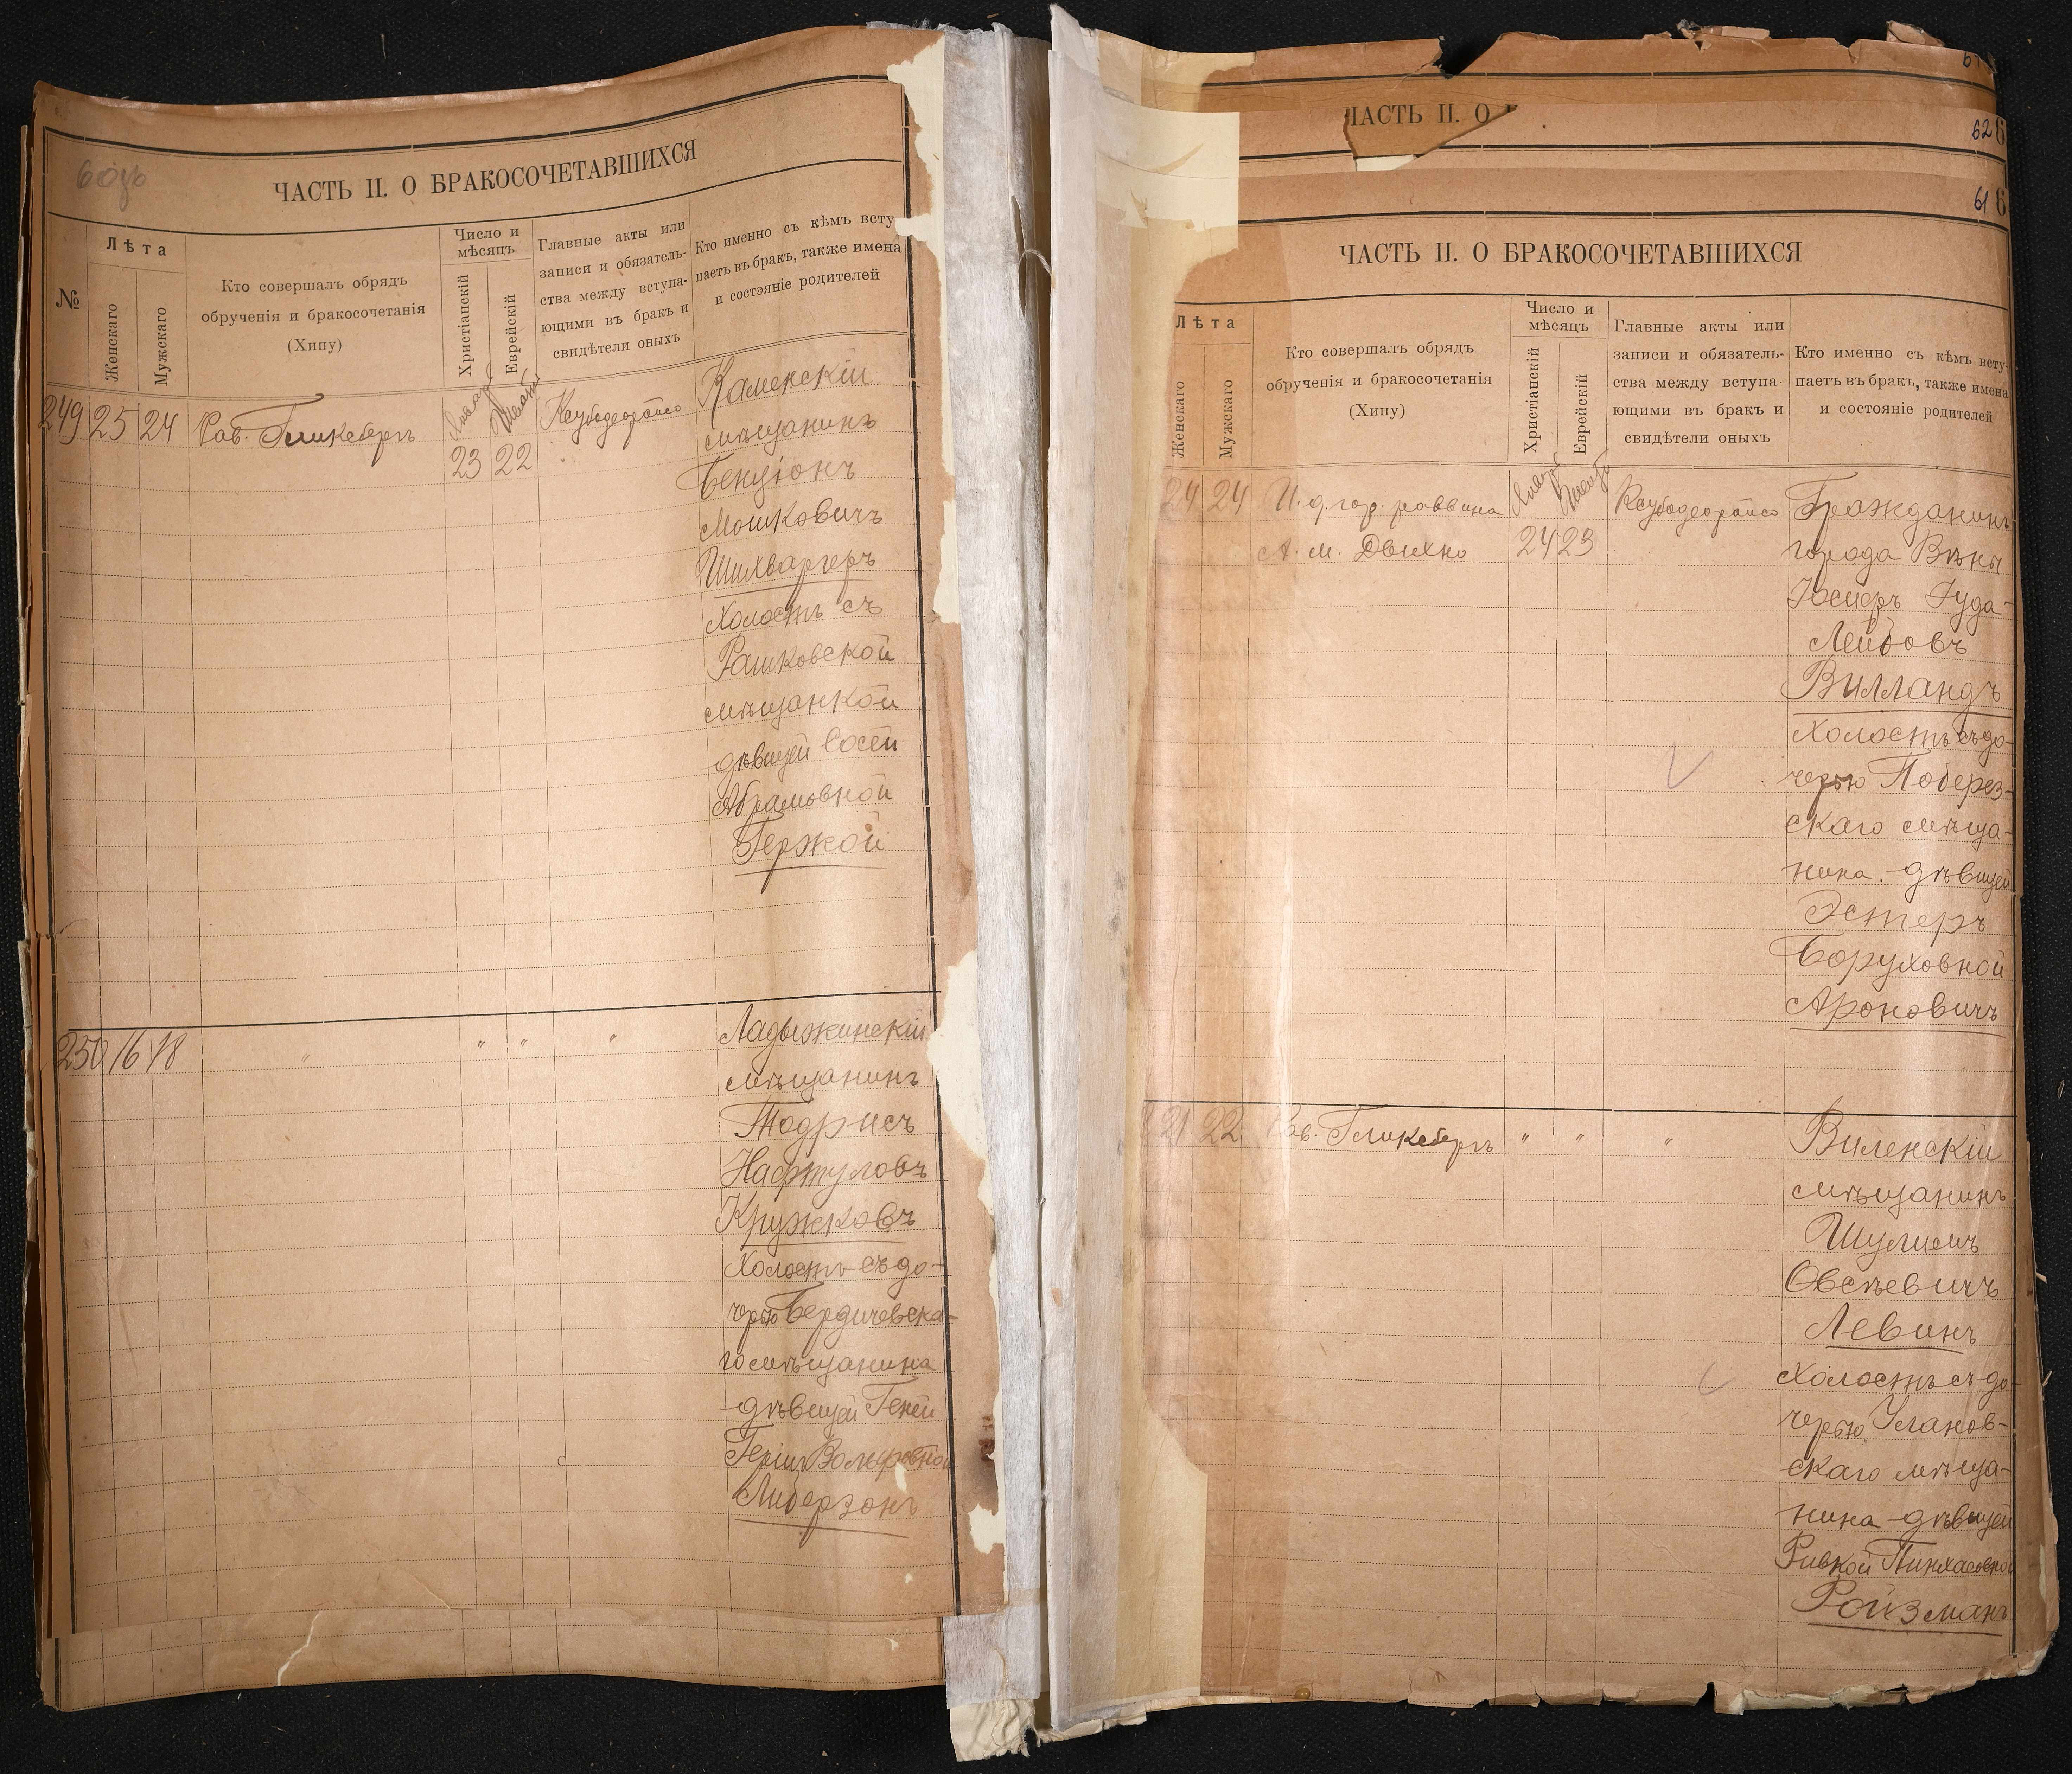 60об
ЧАСТЬ II. О БРАКОСОЧЕТАВШИХСЯ
№
Лѣта
Женскаго
Мужскаго
Кто совершалъ обрядъ
обрученія и бракосочетанія
(Хипу)
Число и
мѣсяцъ
Христіанскій
Еврейскій
Главные акты или
записи и обязатель-
ства между вступа-
ющими въ бракъ и
свидѣтели оныхъ
Кто именно съ кѣмъ всту
паетъ въ бракъ, также имена
и состояніе родителей
249 25 24 Рав. Гликсбергъ
23 22
Каменскій
мѣщанинъ
Бенціонъ
Мошковичъ
Шихваргеръ
холостъ съ
Рашковской
мѣщанкой
дѣвицей Сосей
Абрамовной
Гержой
250 16 18 " " " "
Ладыжинскій
мѣщанинъ
Тодрисъ
Нафтуловъ
Кружковъ
холостъ съ до-
черью Бердичевска-
го мѣщанина
дѣвицей Геней
Герш Вольфовной
Либерзонъ
ЧАСТЬ II. О
62
61
ЧАСТЬ II. О БРАКОСОЧЕТАВШИХСЯ
Лѣта
Женскаго
Мужскаго
Кто совершалъ обрядъ
обрученія и бракосочетанія
(Хипу)
Число и
мѣсяцъ
Христіанскій
Еврейскій
Главные акты или
записи и обязатель-
ства между вступа-
ющими въ бракъ и
свидѣтели оныхъ
Кто именно съ кѣмъ всту-
паетъ въ бракъ, также имена
и состояніе родителей
24 24 И. д. гор. раввина
А. М. Двихно
24 23
Гражданинъ
города Вѣны
Іосифъ Іуда-
Лейбовъ
Вилландъ
холостъ съ до-
черью Поберез-
скаго мѣща-
нина. дѣвицей
Эстеръ
Боруховной
Ароновичъ
21 22 Рав. Гликсбергъ " " "
Виленскій
мѣщанинъ
Шулимъ
Овсѣевичъ
Левинъ
холостъ съ до-
черью Уланов-
скаго мѣща-
нина дѣвицей
Ривкой Пинхасовной
Ройзманъ